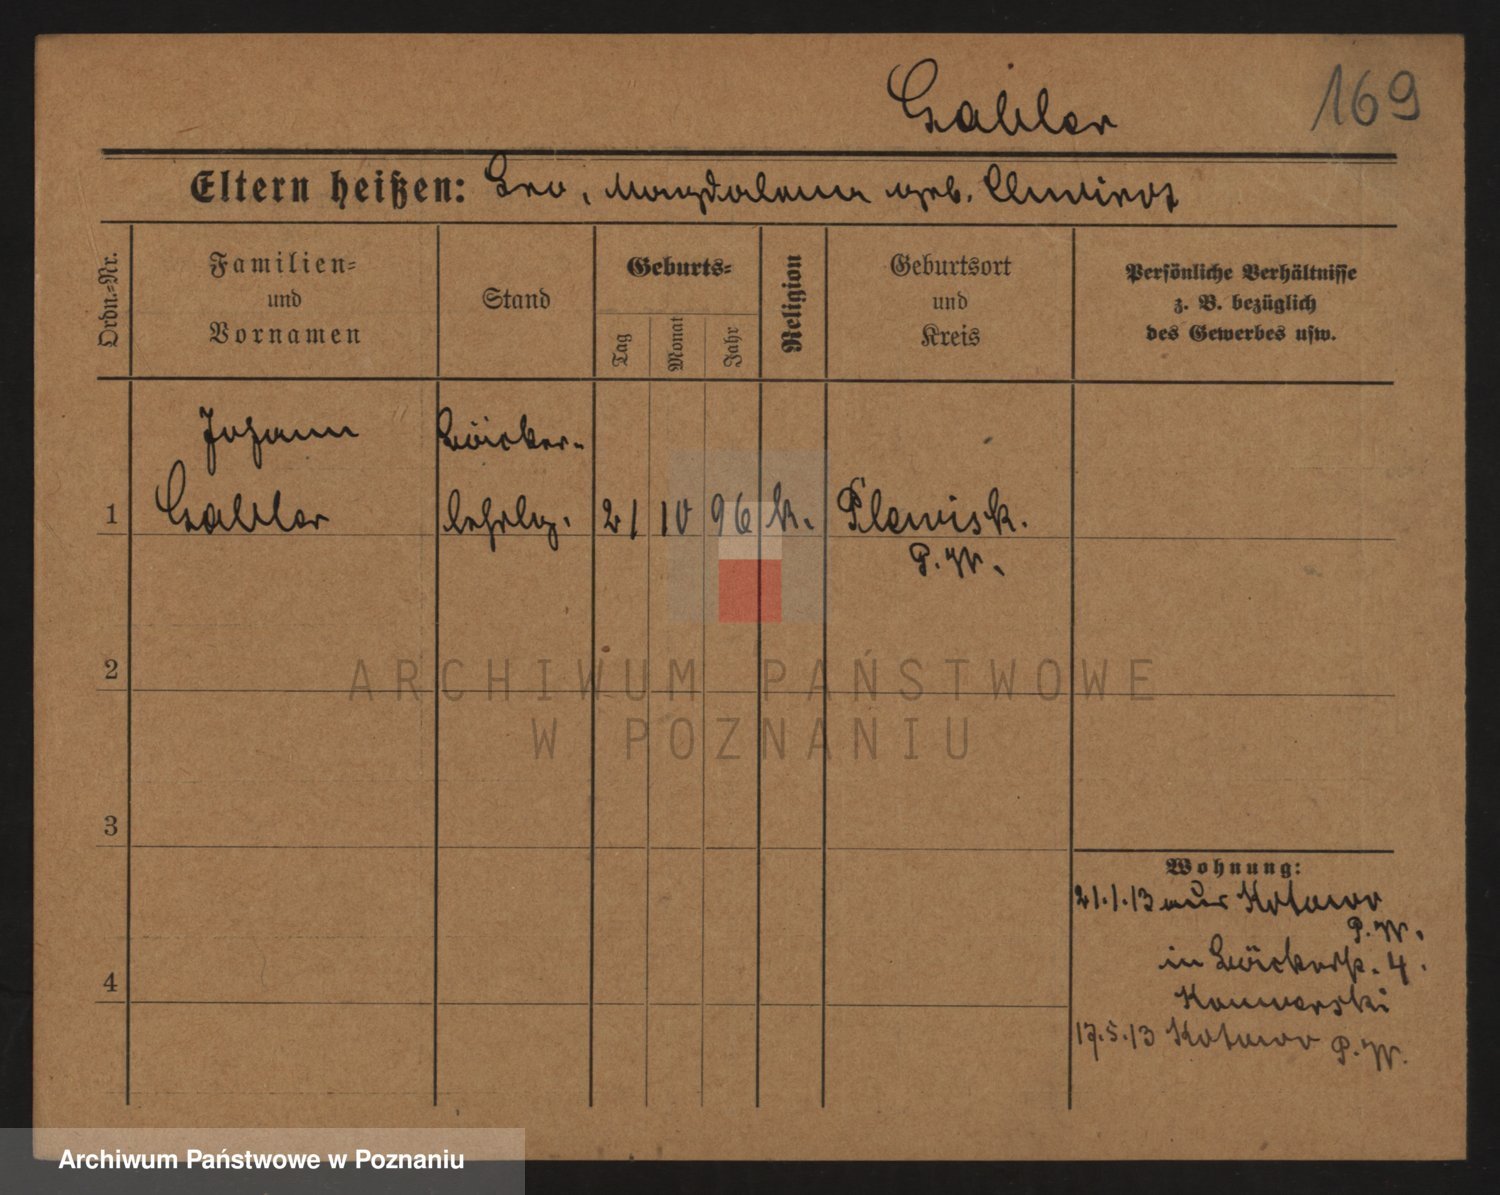 Gabler
169
Eltern heißen: Leo, Magdalena geb.
Ordn.-Nr.
Familien-
und
Vornamen
Stand
Geburts-
Tag
Monat
Jahr
Religion
Geburtsort
und
Kreis
Persönliche Verhältnisse
z. B. bezüglich
des Gewerbes usw.
Johann Bäcker-
1 Gabler lehrlg. 21 10 96 k. Plewisk.
P. W.
2
3
4
Wohnung:
21.1.13 aus Kotowo
P. W.
in Bäckerstr. 4.
17.5.13 Kotowo P. W.
ARCHIWUM PAŃSTWOWE
W POZNANIU
Archiwum Państwowe w Poznaniu